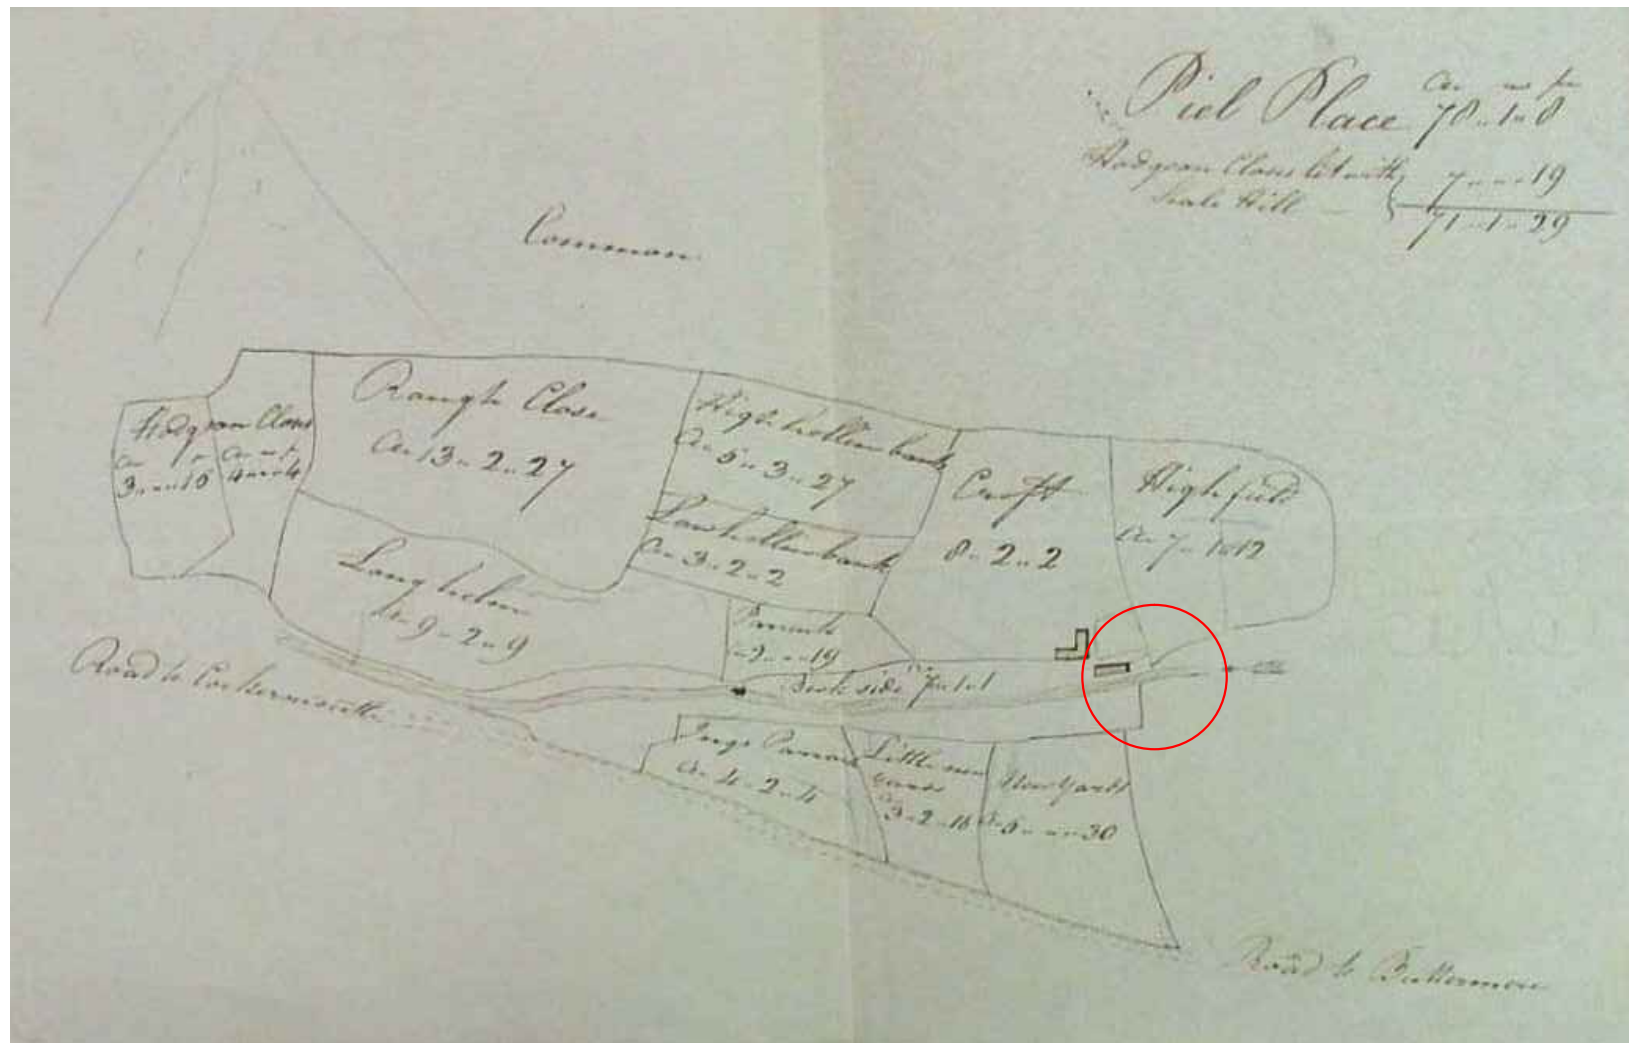 Piel Place
Ac r p
78 " 1 " 8
Hodgson Close let with
Scale Hill
7 " " " 19
71 " 1 " 29
Common
Hodgson Close
3 " " " 15
4 " " " 4
Rough Close
Ac 13 " 2 " 27
High hollin bank
Ac 5 " 3 " 27
Low hollin bank
Ac 3 " 2 " 2
Croft
8 " 2 " 2
High field
Ac 7 " 1 " 12
Long holm
Ac 9 " 2 " 9
Parrock
" 2 " " " 19
Beck side 7 " 1 " 1
Road to Cockermouth
Ings Parrock
Ac 4 " 2 " 4
Little new
yards
3 " 2 " 16
New Yards
5 " " " 30
Road to Buttermere